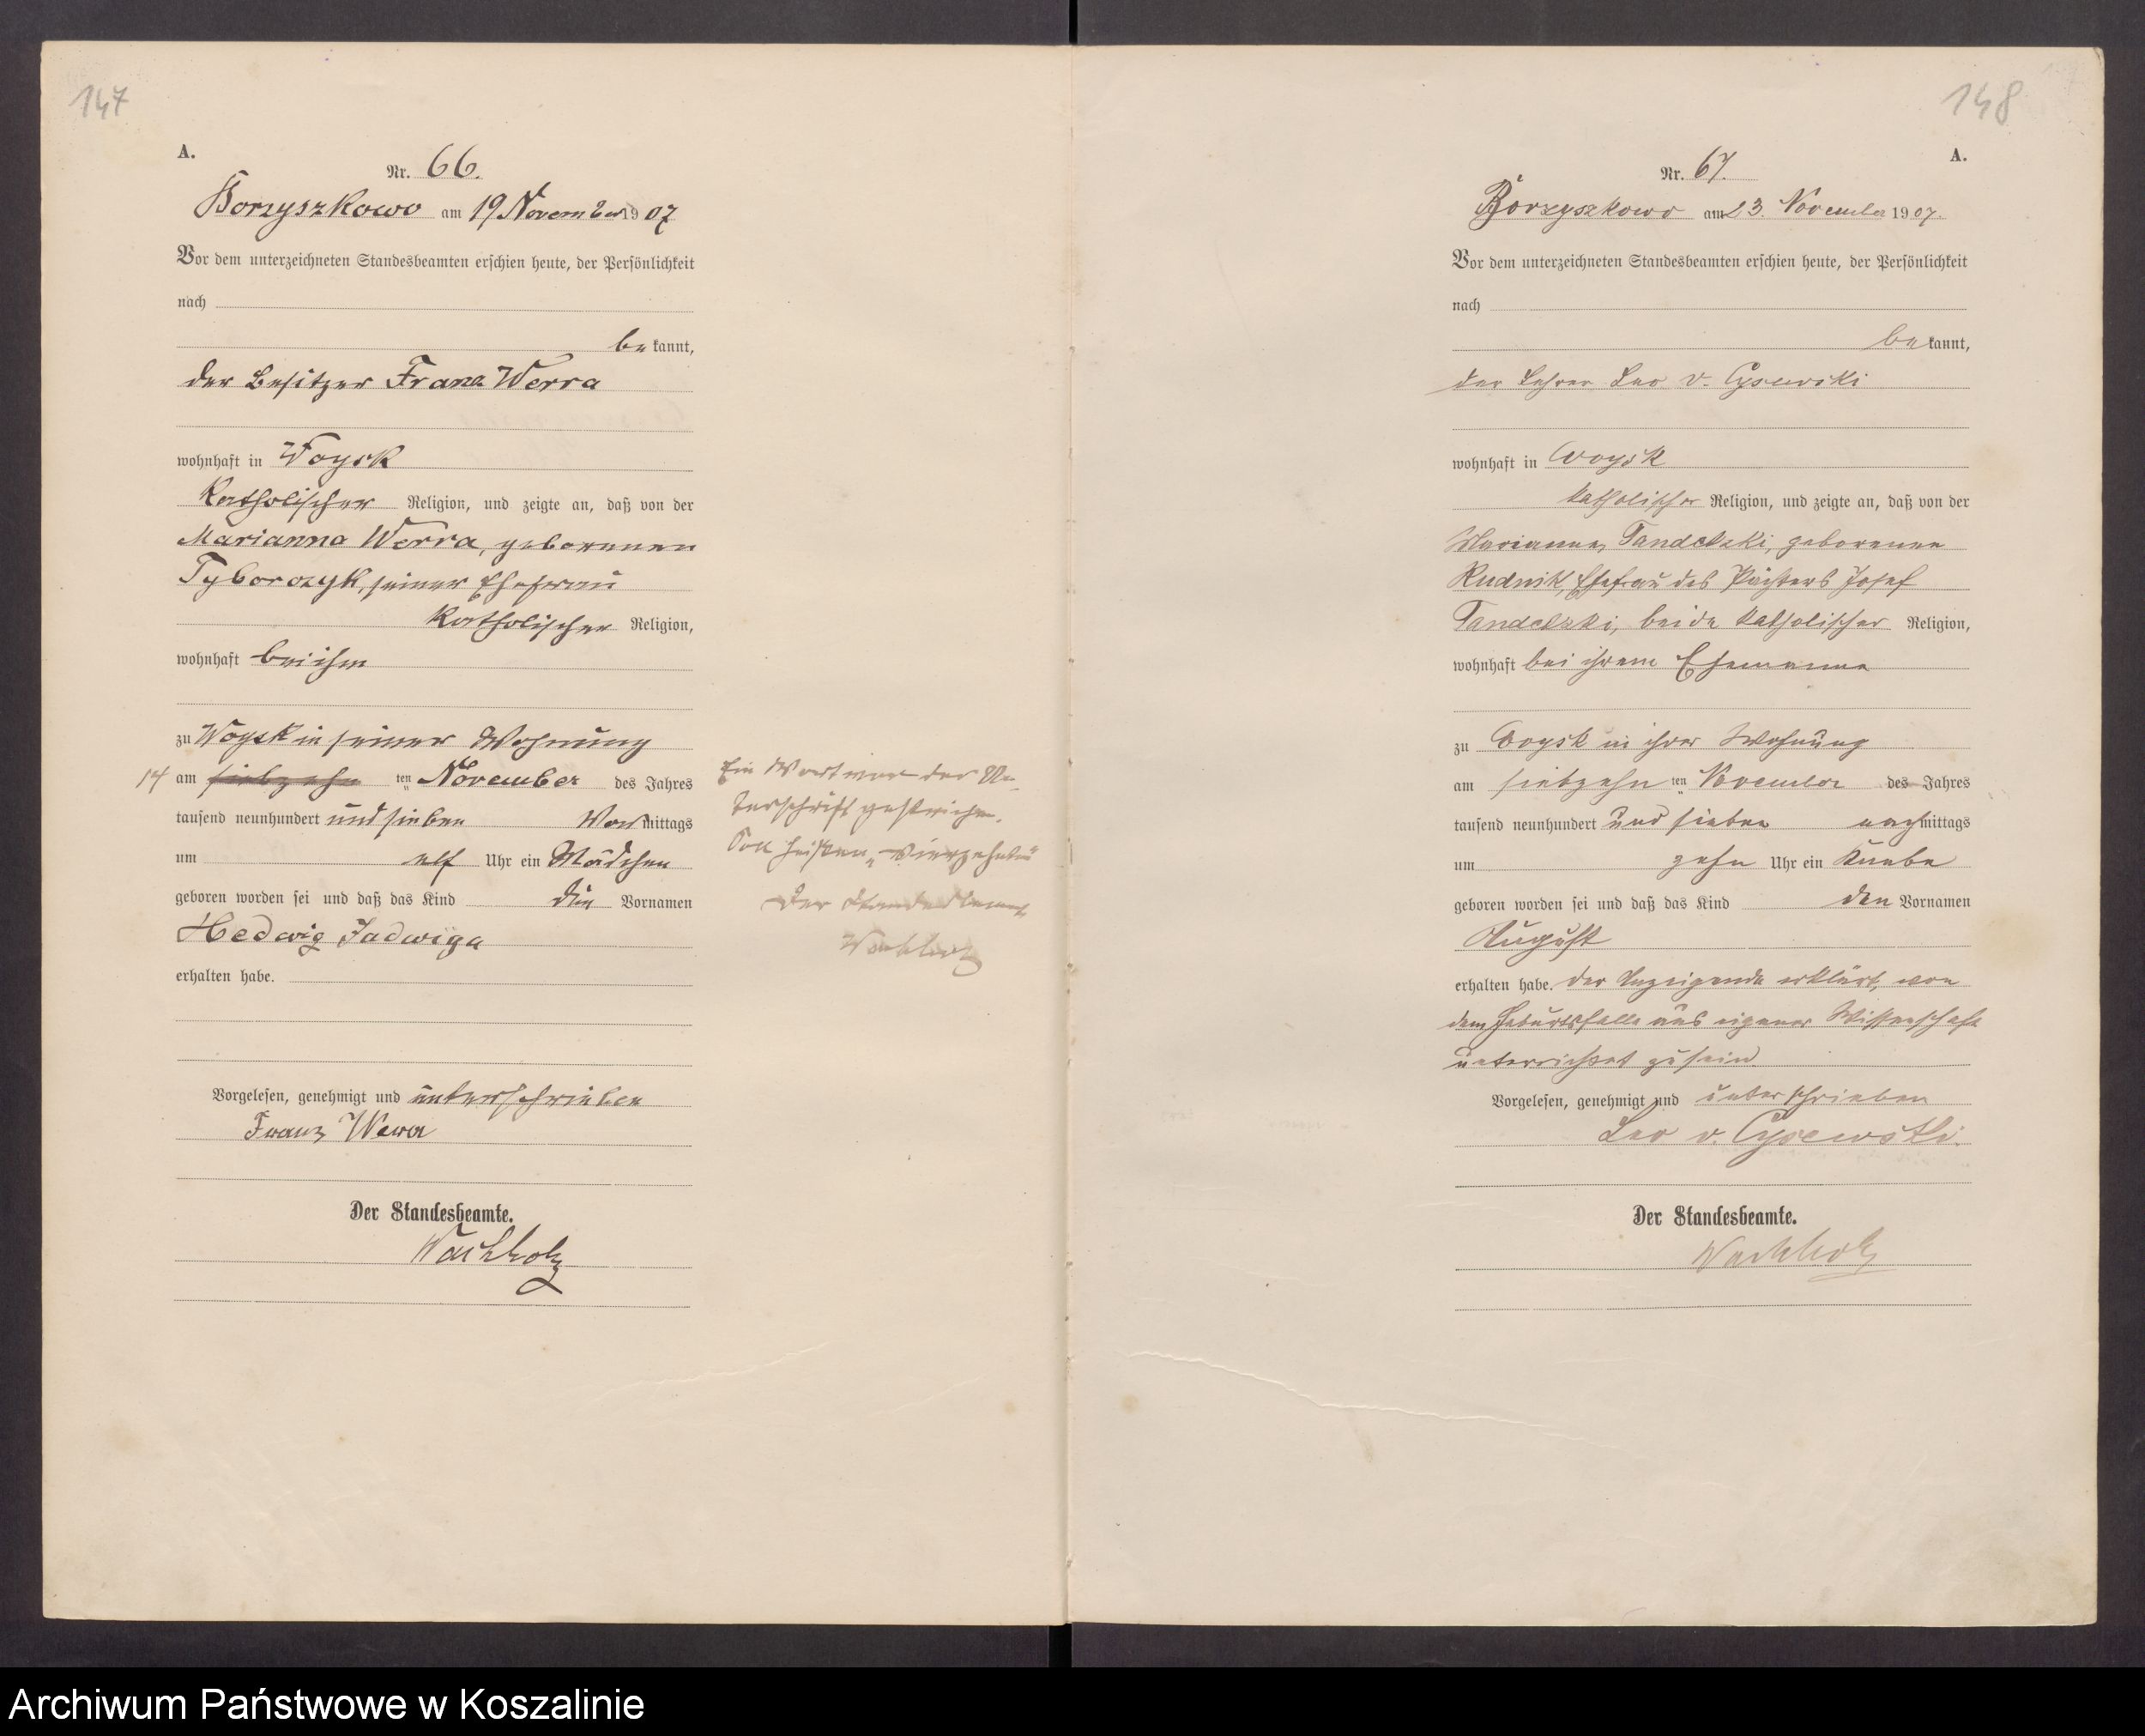 147
A.
Nr. 66.
Borzyszkowo am 19 November 1907
Vor dem unterzeichneten Standesbeamten erschien heute, der Persönlichkeit
nach
bekannt,
der Besitzer Franz Werra
wohnhaft in Woysk
katholischer Religion, und zeigte an, daß von der
Marianna Werra, geborenen
Tyborczyk, seiner Ehefrau
katholischer Religion,
wohnhaft bei ihm
zu Woysk in seiner Wohnung
14 am siebzehn ten November des Jahres
tausend neunhundert und sieben Vormittags
um elf Uhr ein Mädchen
geboren worden sei und daß das Kind die Vornamen
Hedwig Jadwiga
erhalten habe.
Vorgelesen, genehmigt und unterschrieben
Franz Werra
Der Standesbeamte.
Wachholz
Ein Wort vor der Un-
terschrift gestrichen.
Soll heißen „vierzehnten"
Der Standesbeamte
Wachholz
148
A.
Nr. 67.
Borzyszkowo am 23. November 1907.
Vor dem unterzeichneten Standesbeamten erschien heute, der Persönlichkeit
nach
bekannt,
der Lehrer Leo v. Cysewski
wohnhaft in Woysk
katholischer Religion, und zeigte an, daß von der
Marianna, Tandetzki, geborenen
Rudnik, Ehefrau des Pächters Josef
Tandetzki, beide katholischer Religion,
wohnhaft bei ihrem Ehemanne
zu Woysk in ihrer Wohnung
am siebzehn ten November des Jahres
tausend neunhundert und sieben nachmittags
um zehn Uhr ein Knabe
geboren worden sei und daß das Kind den Vornamen
August
erhalten habe. Der Anzeigende erklärt, von
dem Geburtsfalle aus eigener Wissenschaft
unterrichtet zu sein
Vorgelesen, genehmigt und unterschrieben
Leo v. Cysewski.
Der Standesbeamte.
Wachholz
Archiwum Państwowe w Koszalinie